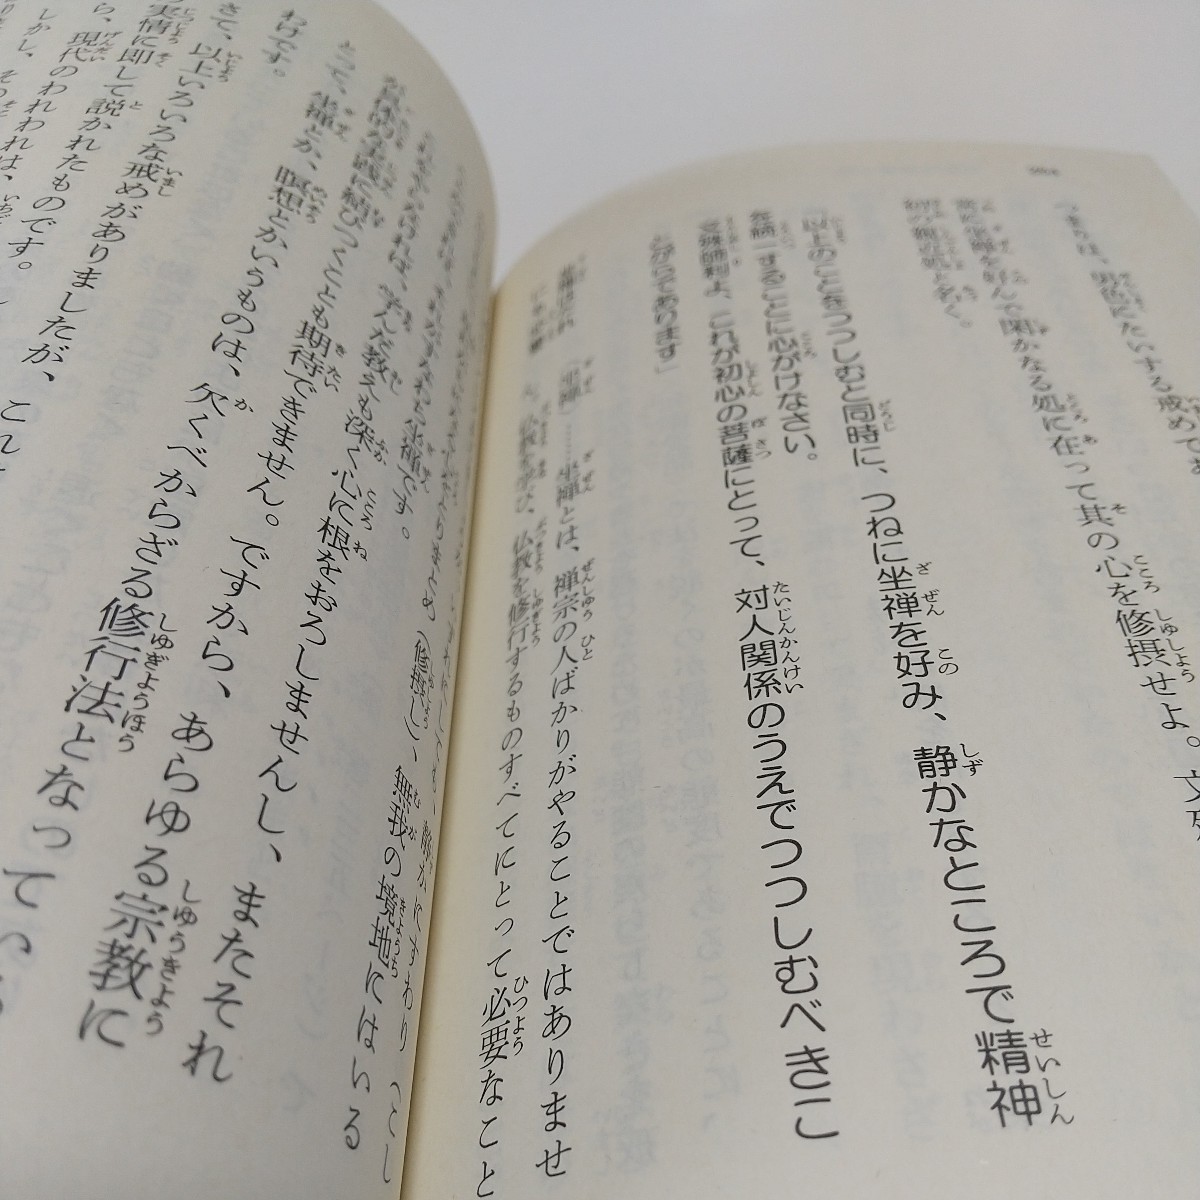 つまりは、異性にたいする戒めであ
常に坐禅を好んで閑かなる処に在って其の心を修摂せよ。文殊
初の親近処と名く。
「以上のことをつつしむと同時に、つねに坐禅を好み、静かなところで精神
を統一することに心がけなさい。
文殊師利よ、これが初心の菩薩にとって、対人関係のうえでつつしむべきこ
とがらであります」
（坐禅）……坐禅とは、禅宗の人ばかりがやることではありませ
ん。仏教を学び、仏教を修行するものすべてにとって必要なこと
静かにすわり（こし
（修摂し）、無我の境地にはいる
坐禅です。
これをやらなければ、学んだ教えも深く心に根をおろしませんし、またそれ
が具体的な実践に結びつくことも期待できません。ですから、あらゆる宗教に
とって、坐禅とか、瞑想とかいうものは、欠くべからざる修行法となっている
わけです。
さて、以上いろいろな戒めがありましたが、これ
実情に即して説かれたものです。
ら、現代のわれわれは、
しかし、そ